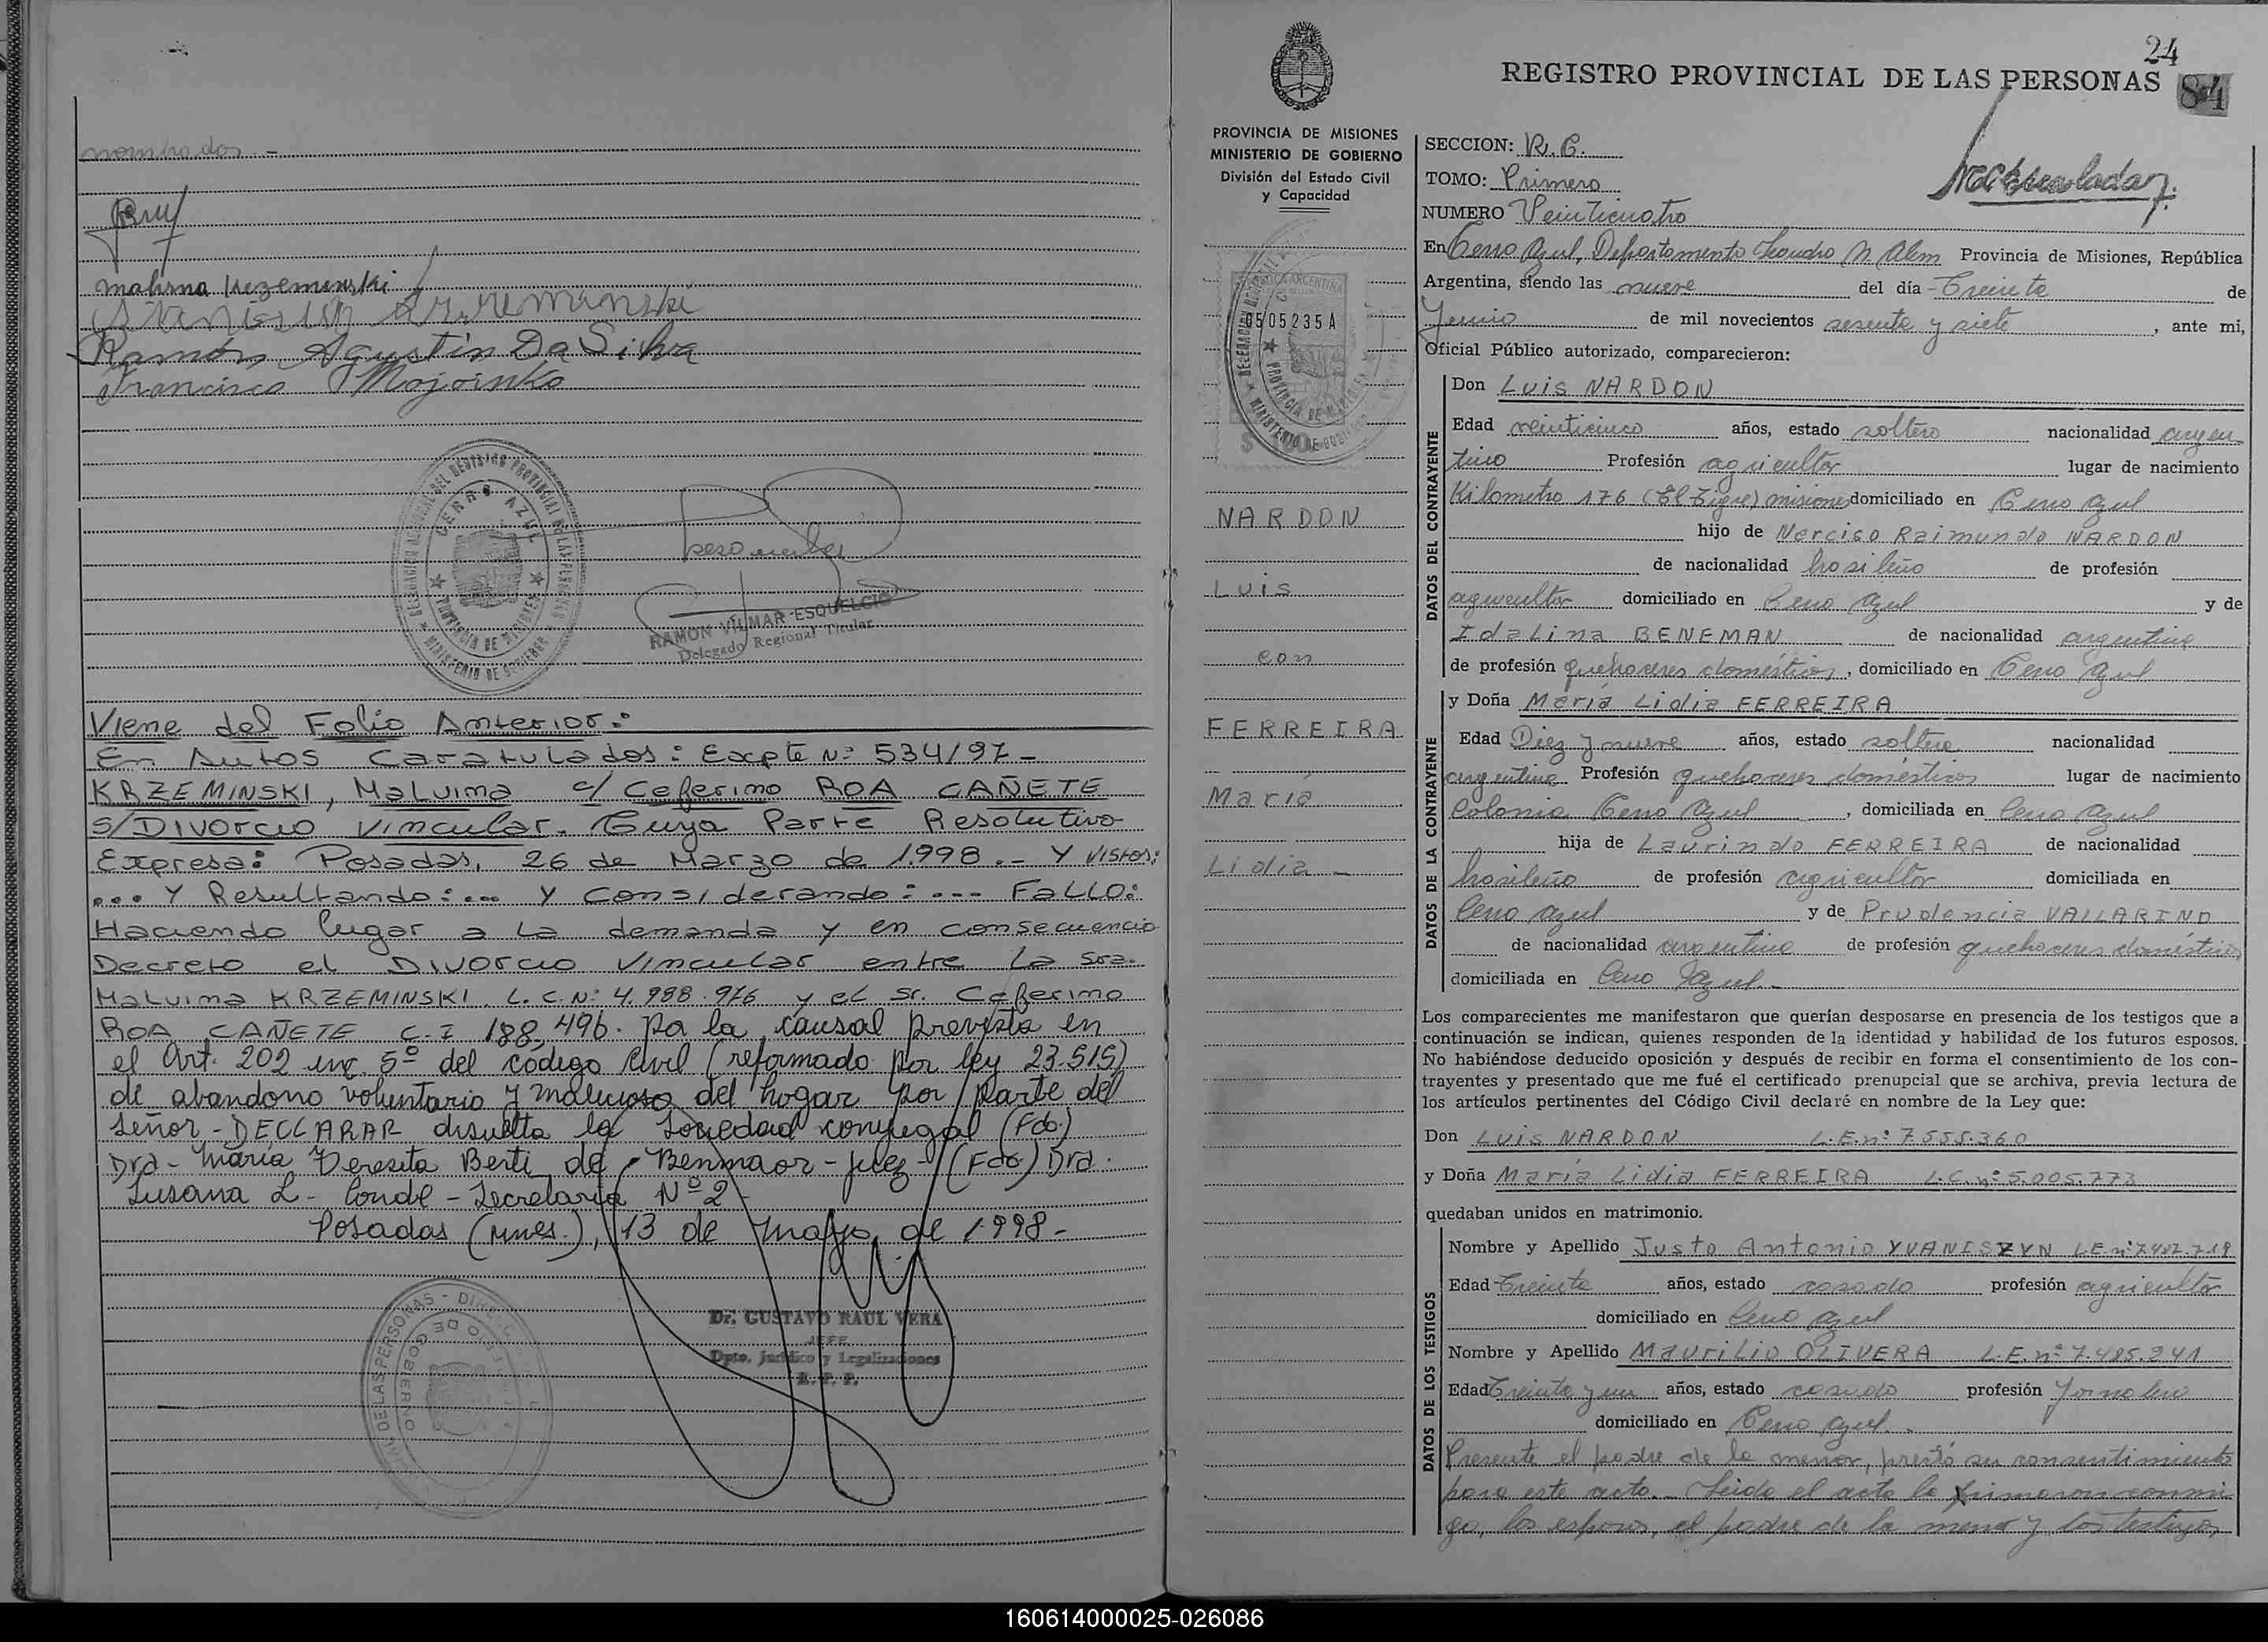 nombrados.-
Malvina Krzeminski
Ramón Agustin Da Silva
Francisco Mojoinko
DELEGACION REGIONAL DEL REGISTRO PROVINCIAL DE LAS PERSONAS
CERRO AZUL
PROVINCIA DE MISIONES
MINISTERIO DE GOBIERNO
RAMON VILMAR ESQUELCIO
Delegado Regional Titular
Viene del Folio Anterior.-
En Autos Caratulados: Expte Nº 534/97-
KRZEMINSKI, Malvina c/ Ceferino ROA CAÑETE
s/ DIVORCIO Vincular. Cuya Parte Resolutivo
Expresa: Posadas, 26 de Marzo de 1.998.- Y VISTOS:
... Y Resultando:... Y Considerando:... FALLO:
Haciendo lugar a la demanda y en consecuencia
Decreto el DIVORCIO Vincular entre la Sra.
Malvina KRZEMINSKI. L.C. Nº 4.988.976 y el Sr. Ceferino
ROA CAÑETE C.I 188,496. por la causal prevista en
el Art. 202 inc. 5º del código civil (reformado por ley 23.515)
de abandono voluntario y malicioso del hogar por parte del
Señor - DECLARAR disuelta la Sociedad conyugal (Fdo.)
Dra- María Teresita Berti de Benmaor - Juez - (Fdo) Dra.
Susana L- Conde - Secretaria Nº 2-
Posadas (mnes.), 13 de Mayo de 1998-
Dr. GUSTAVO RAUL VERA
JEFE
Dpto. Jurídico y Legalizaciones
R. P. P.
24
REGISTRO PROVINCIAL DE LAS PERSONAS 84
PROVINCIA DE MISIONES
MINISTERIO DE GOBIERNO
División del Estado Civil
y Capacidad
0505235A
NARDON
Luis
con
FERREIRA
María
Lidia -
SECCION: R. C.
TOMO: Primero
NUMERO Veinticuatro
En Cerro Azul, Departamento Leandro N Alem Provincia de Misiones, República
Argentina, siendo las nueve del día Treinta de
Junio de mil novecientos sesenta y siete, ante mi,
Oficial Público autorizado, comparecieron:
DATOS DEL CONTRAYENTE
Don Luis NARDON
Edad veinticinco años, estado soltero nacionalidad argen
tino Profesión agricultor lugar de nacimiento
Kilometro 176 (El Tigre) misiones domiciliado en Cerro Azul
hijo de Narciso Raimundo NARDON
de nacionalidad brasileño de profesión
agricultor domiciliado en Cerro Azul y de
Idalina BENEMAN de nacionalidad argentina
de profesión quehaceres domésticos, domiciliado en Cerro Azul
DATOS DE LA CONTRAYENTE
y Doña María Lidia FERREIRA
Edad Diez y nueve años, estado soltera nacionalidad
argentina Profesión quehaceres domésticos lugar de nacimiento
Colonia Cerro Azul, domiciliada en Cerro Azul
hija de Laurindo FERREIRA de nacionalidad
brasileño de profesión agricultor domiciliada en
Cerro Azul y de Prudencia VALLARINO
de nacionalidad argentina de profesión quehaceres domésticos
domiciliada en Cerro Azul.-
Los comparecientes me manifestaron que querían desposarse en presencia de los testigos que a
continuación se indican, quienes responden de la identidad y habilidad de los futuros esposos.
No habiéndose deducido oposición y después de recibir en forma el consentimiento de los con-
trayentes y presentado que me fué el certificado prenupcial que se archiva, previa lectura de
los artículos pertinentes del Código Civil declaré en nombre de la Ley que:
Don Luis NARDON L.E. nº 7.555.360
y Doña María Lidia FERREIRA L.C. nº 5.005.773
quedaban unidos en matrimonio.
DATOS DE LOS TESTIGOS
Nombre y Apellido Justo Antonio YVANISZYN L.E. nº 7.487.719
Edad Treinta años, estado casado profesión agricultor
domiciliado en Cerro Azul
Nombre y Apellido Maurilio OLIVERA L.E. nº 7.485.241
Edad Treinta y un años, estado casado profesión Jornalero
domiciliado en Cerro Azul.
Presente el padre de la menor, prestó su consentimiento
para este acto.- Leída el acta la firmaron conmi
go, los esposos, el padre de la menor y los testigos
160614000025-026086